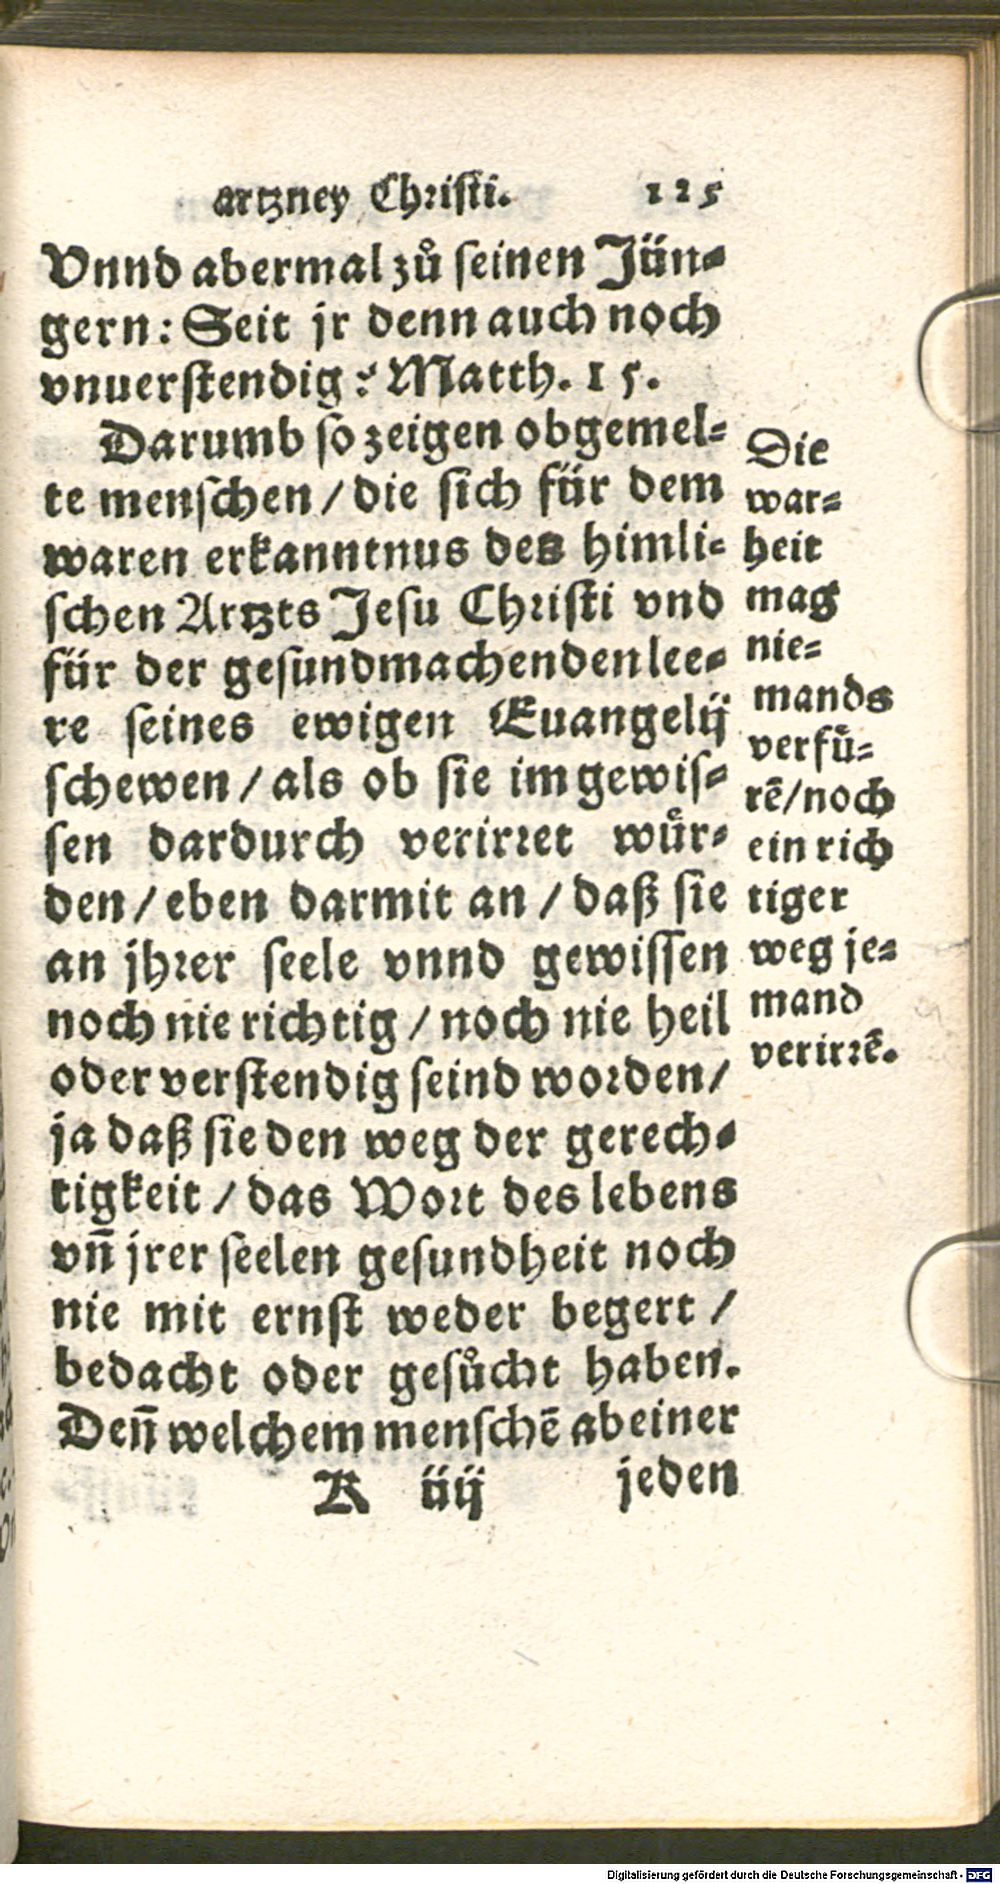 artzney Christi. 125
Vnnd abermal zů seinen Jün-
gern: Seit jr denn auch noch
vnuerstendig? Matth. 15.
Darumb so zeigen obgemel-
te menschen / die sich für dem
waren erkanntnus des himli-
schen Artzts Jesu Christi vnd
für der gesundmachenden lee-
re seines ewigen Euangelij
schewen / als ob sie im gewis-
sen dardurch verirret wůr-
den / eben darmit an / daß sie
an jhrer seele vnnd gewissen
noch nie richtig / noch nie heil
oder verstendig seind worden /
ja daß sie den weg der gerech-
tigkeit / das Wort des lebens
vñ jrer seelen gesundheit noch
nie mit ernst weder begert /
bedacht oder gesůcht haben.
Deñ welchem menschē ab einer
K iiij jeden
Die
war-
heit
mag
nie-
mands
verfů-
rē / noch
ein rich
tiger
weg je-
mand
verirrē.
Digitalisierung gefördert durch die Deutsche Forschungsgemeinschaft - DFG